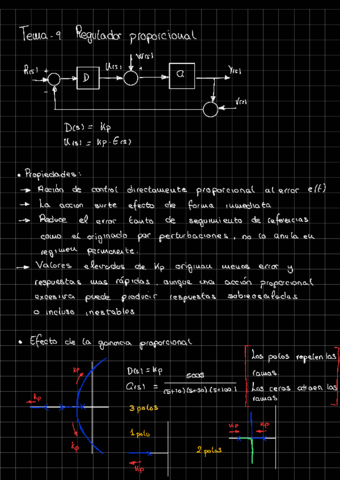 Tema-9 Regulador proporcional
W(s)
R(s) + D U(s) + G Y(s)
-
V(s)
D(s) = Kp
U(s) = Kp · E(s)
• Propiedades:
→ Acción de control directamente proporcional al error e(t)
→ La acción surte efecto de forma inmediata
→ Reduce el error tanto de seguimiento de referencias
como el originado por perturbaciones, no lo anula en
regimen permanente.
→ Valores elevados de Kp originan menos error y
respuestas mas rápidas, aunque una acción proporcional
excesiva puede producir respuestas sobreosciladas
o incluso inestables
• Efecto de la ganancia proporcional
Kp
Kp
Kp
D(s) = Kp
G(s) = 5000
(s+10)(s+50)(s+100)
3 polos
1 polo
Kp
2 polos
Kp Kp
Los polos repelen las
ramas.
Los ceros atraen las
ramas